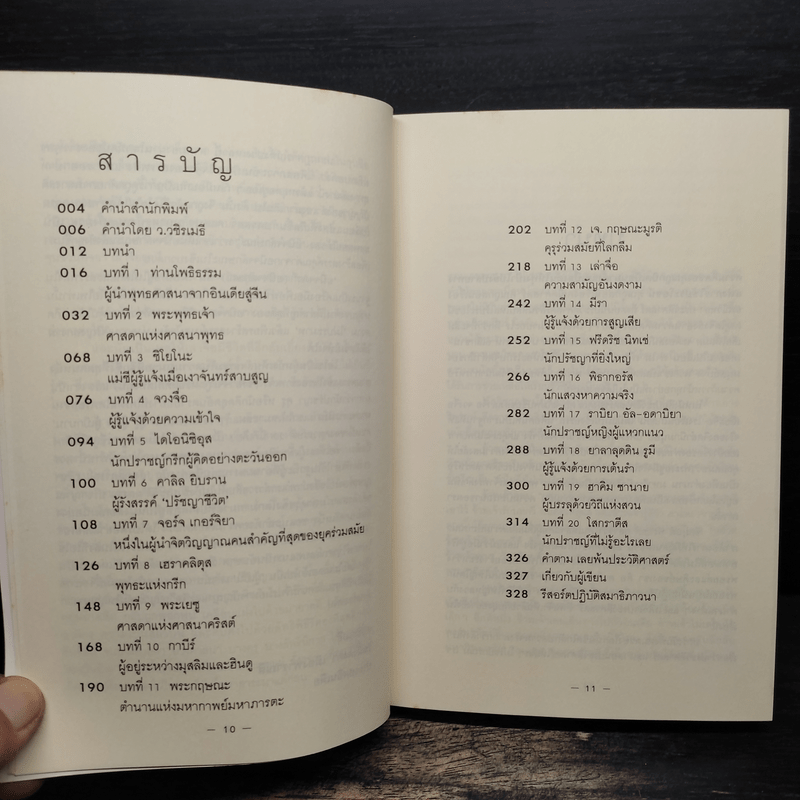 สารบัญ
004 คำนำสำนักพิมพ์
006 คำนำโดย ว.วชิรเมธี
012 บทนำ
016 บทที่ 1 ท่านโพธิธรรม
ผู้นำพุทธศาสนาจากอินเดียสู่จีน
032 บทที่ 2 พระพุทธเจ้า
ศาสดาแห่งศาสนาพุทธ
068 บทที่ 3 ชิโยโนะ
แม่ชีผู้รู้แจ้งเมื่อเงาจันทร์สาบสูญ
076 บทที่ 4 จวงจื่อ
ผู้รู้แจ้งด้วยความเข้าใจ
094 บทที่ 5 ไดโอนิซิอุส
นักปราชญ์กรีกผู้คิดอย่างตะวันออก
100 บทที่ 6 คาลิล ยิบราน
ผู้รังสรรค์ 'ปรัชญาชีวิต'
108 บทที่ 7 จอร์จ เกอร์จิยา
หนึ่งในผู้นำจิตวิญญาณคนสำคัญที่สุดของยุคร่วมสมัย
126 บทที่ 8 เฮราคลิตุส
พุทธะแห่งกรีก
148 บทที่ 9 พระเยซู
ศาสดาแห่งศาสนาคริสต์
168 บทที่ 10 กาบีร์
ผู้อยู่ระหว่างมุสลิมและฮินดู
190 บทที่ 11 พระกฤษณะ
ตำนานแห่งมหากาพย์มหาภารตะ
— 10 —
202 บทที่ 12 เจ. กฤษณะมูรติ
คุรุร่วมสมัยที่โลกลืม
218 บทที่ 13 เล่าจื่อ
ความสามัญอันงดงาม
242 บทที่ 14 มีรา
ผู้รู้แจ้งด้วยการสูญเสีย
252 บทที่ 15 ฟรีดริช นิทเช่
นักปรัชญาที่ยิ่งใหญ่
266 บทที่ 16 พิธากอรัส
นักแสวงหาความจริง
282 บทที่ 17 ราบิยา อัล-อดาบิยา
นักปราชญ์หญิงผู้แหวกแนว
288 บทที่ 18 ยาลาลุดดิน รูมี
ผู้รู้แจ้งด้วยการเต้นรำ
300 บทที่ 19 ฮาคิม ซานาย
ผู้บรรลุด้วยวิถีแห่งสวน
314 บทที่ 20 โสกราตีส
นักปราชญ์ที่ไม่รู้อะไรเลย
326 คำตาม เลยพ้นประวัติศาสตร์
327 เกี่ยวกับผู้เขียน
328 รีสอร์ตปฏิบัติสมาธิภาวนา
— 11 —